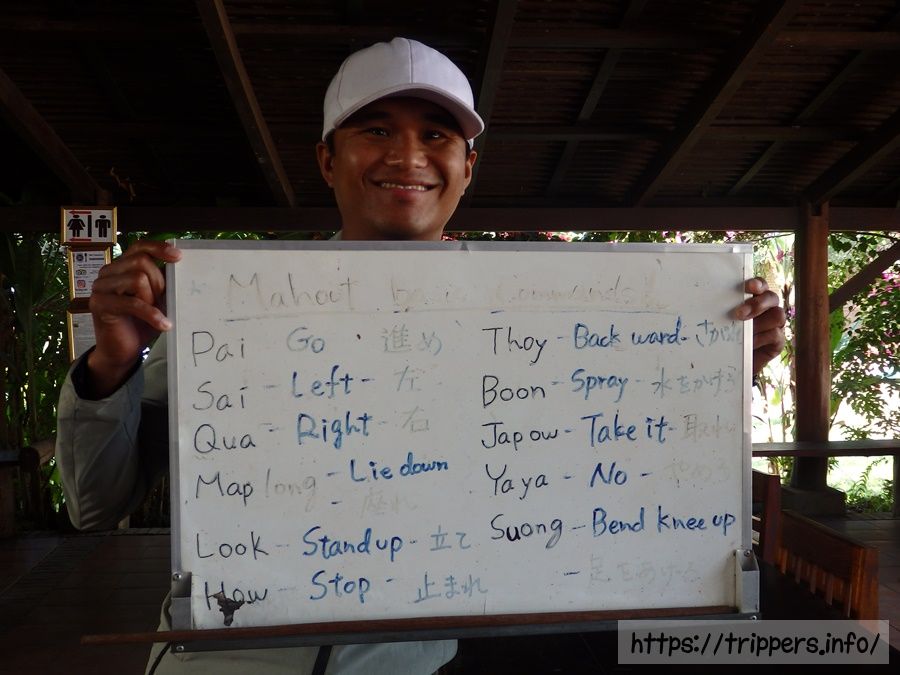 Mahout basic Commands!!
Pai Go 進め
Sai - Left - 左
Qua - Right - 右
Map long - Lie down
- 座れ
Look - Stand up - 立て
How - Stop - 止まれ
Thoy - Back ward - さがれ
Boon - Spray - 水をかけろ
Jap ow - Take it - 取れ
Yaya - No - やめろ
Suong - Bend knee up
- 足をあげろ
https://trippers.info/